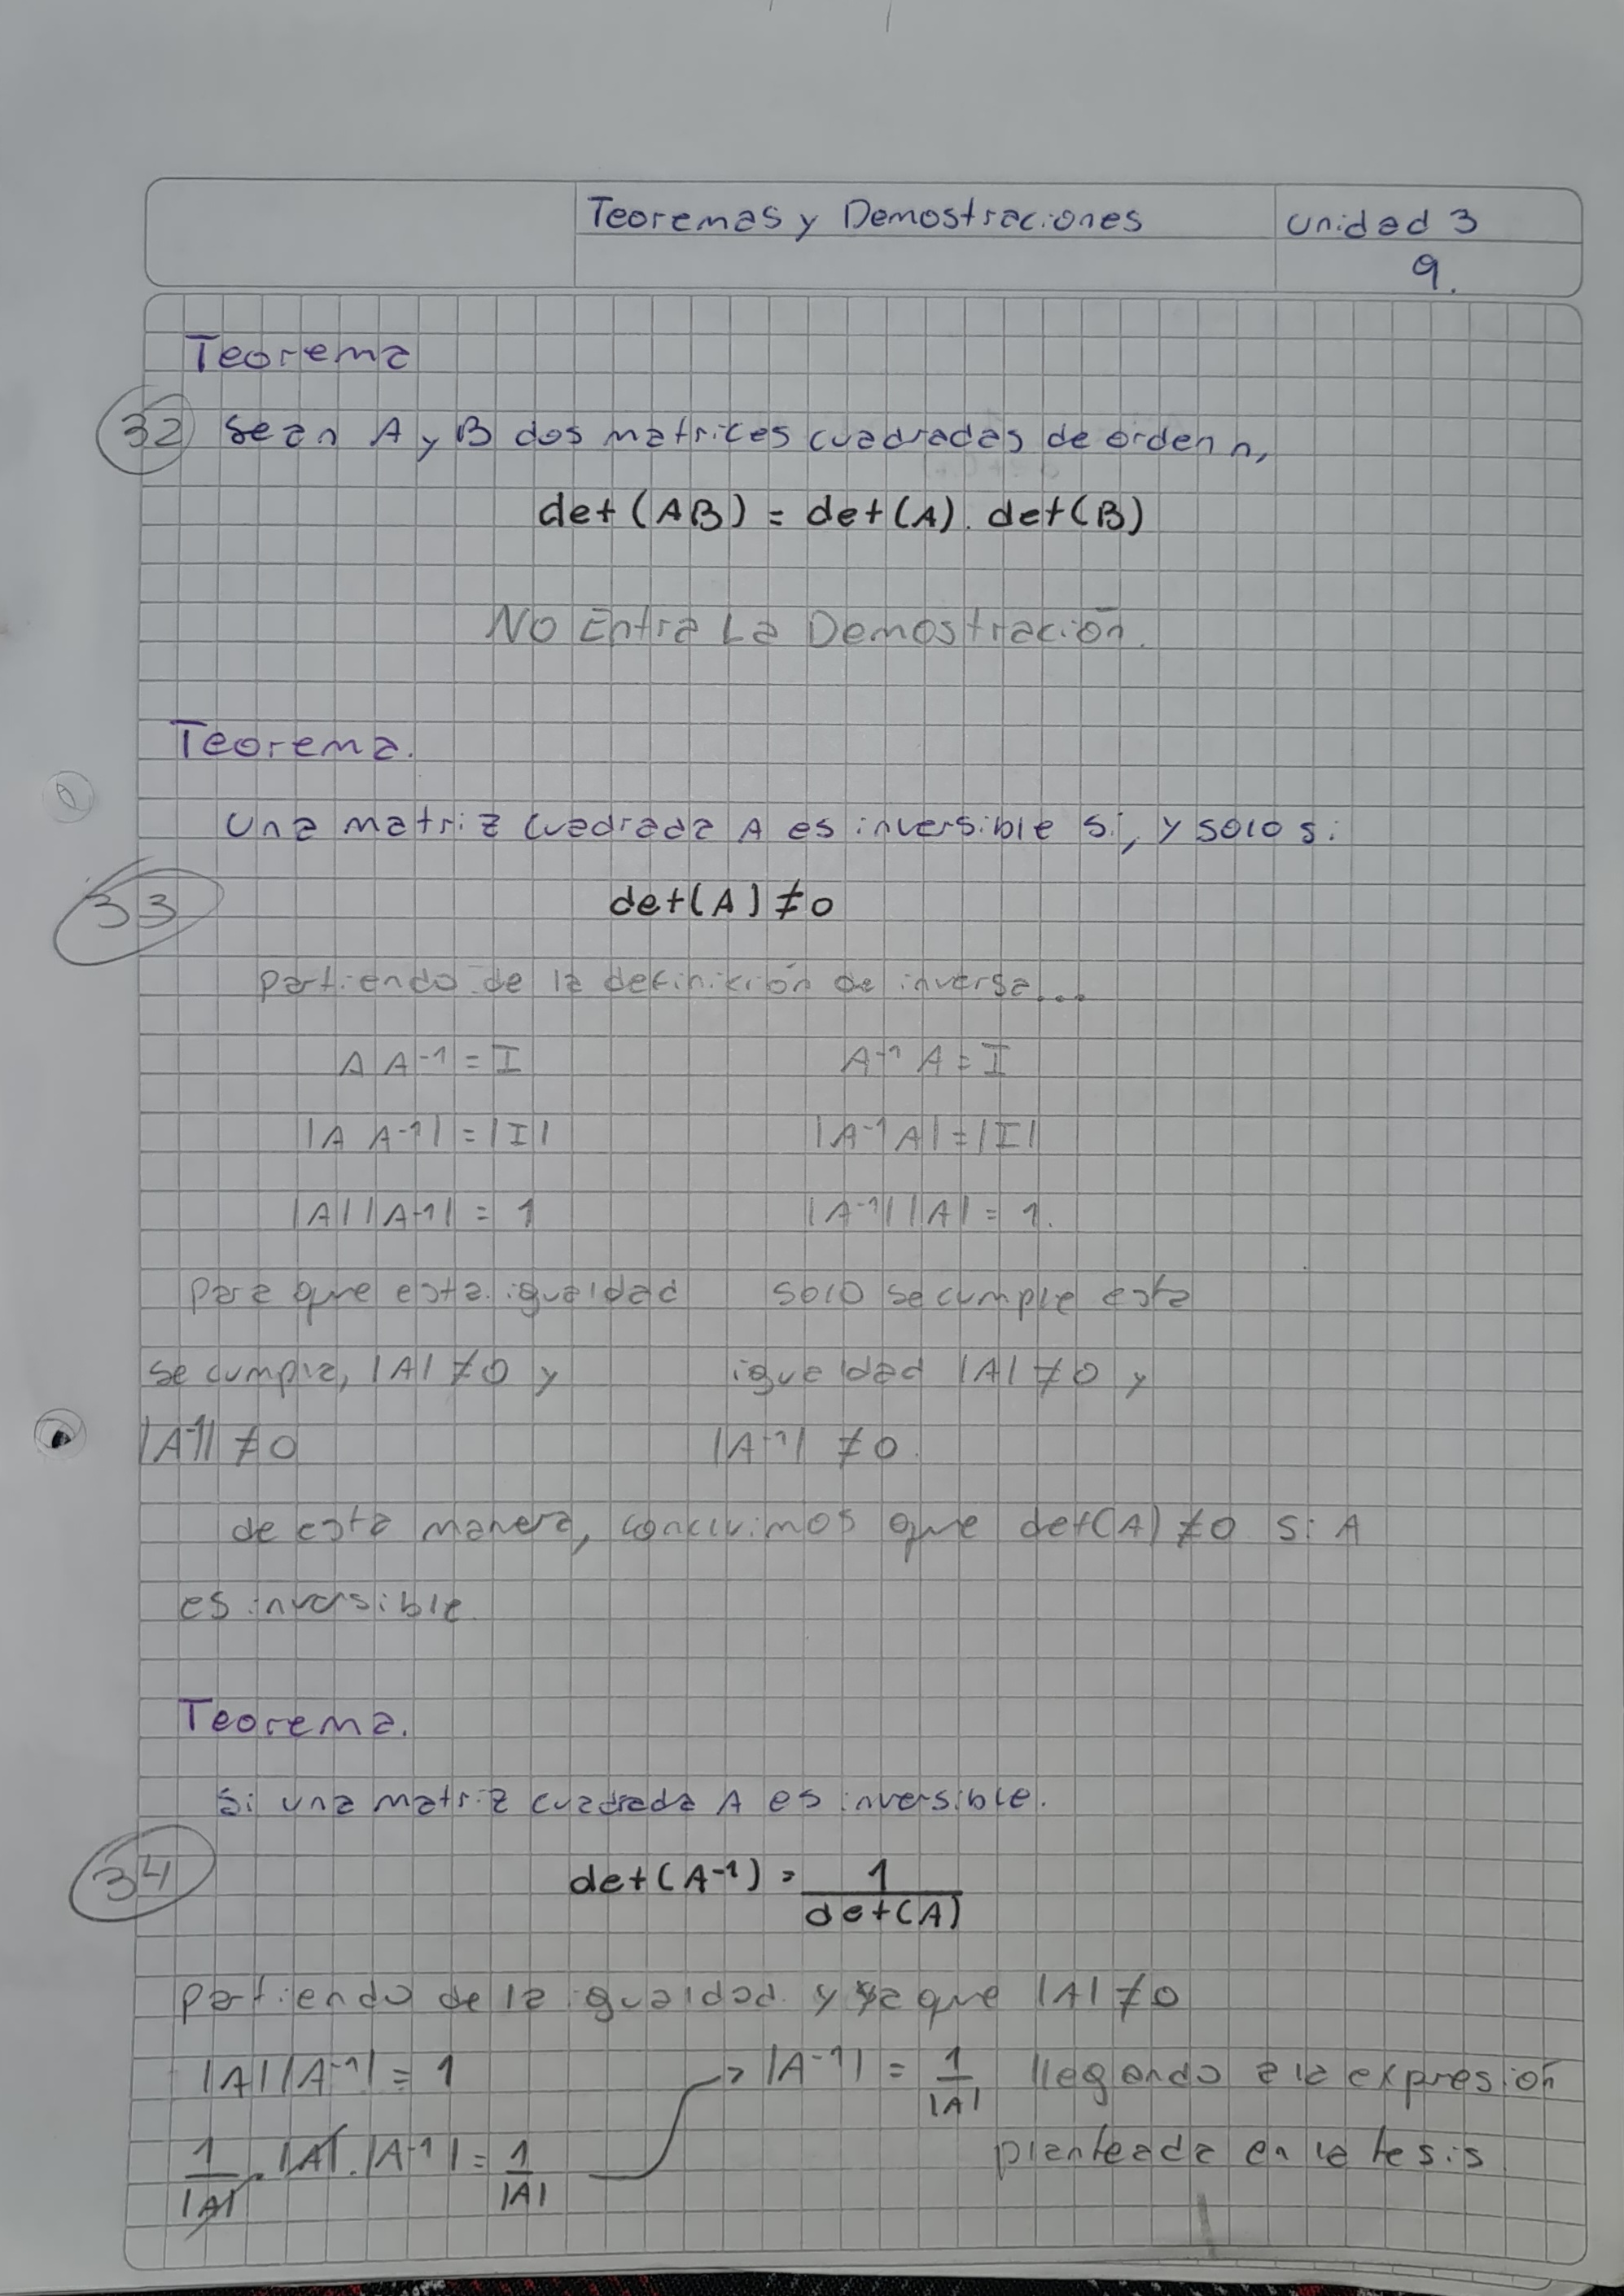 Teoremas y Demostraciones
Unidad 3
9.
Teorema
32 Sean A y B dos matrices cuadradas de orden n,
det (AB) = det (A) . det (B)
No Entra La Demostración.
Teorema.
Una matriz cuadrada A es inversible si, y solo si
33
det(A) ≠ 0
partiendo de la definición de inversa...
A A⁻¹ = I    A⁻¹ A = I
|A A⁻¹| = |I|    |A⁻¹ A| = |I|
|A| |A⁻¹| = 1    |A⁻¹| |A| = 1.
para que esta igualdad    solo se cumple esta
se cumpla, |A| ≠ 0 y    igualdad |A| ≠ 0 y
|A⁻¹| ≠ 0    |A⁻¹| ≠ 0.
de esta manera, concluimos que det(A) ≠ 0 si A
es inversible.
Teorema.
Si una matriz cuadrada A es inversible.
34
det (A⁻¹) = 1/det(A)
partiendo de la igualdad y ya que |A| ≠ 0
|A| |A⁻¹| = 1 → |A⁻¹| = 1/|A| llegando a la expresión
1/|A| . |A| . |A⁻¹| = 1/|A|    planteada en la tesis